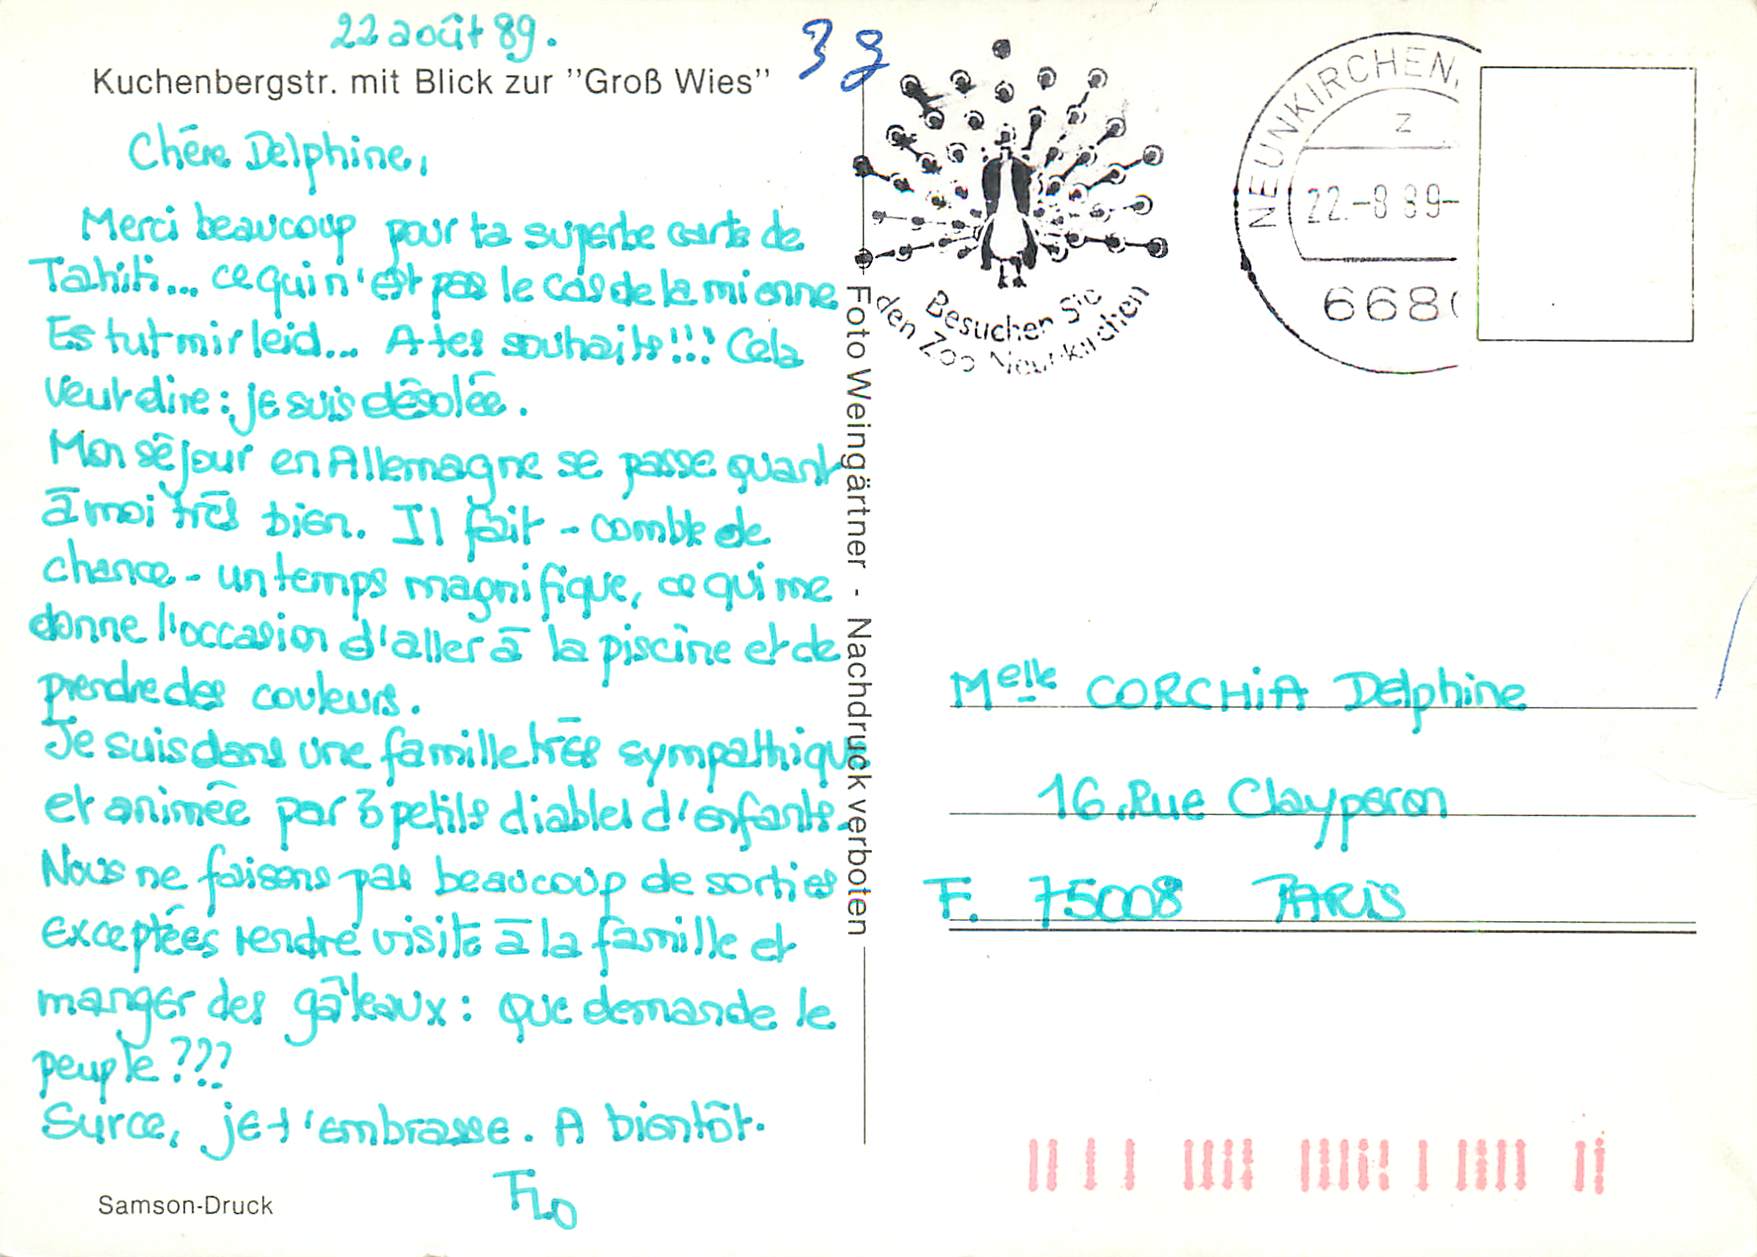 22 août 89.
Kuchenbergstr. mit Blick zur "Groß Wies"
Chère Delphine,
Merci beaucoup pour ta superbe carte de
Tahiti... ce qui n'est pas le cas de la mienne
Es tut mir leid... A tes souhaits!!! Cela
veut dire : je suis désolée.
Mon séjour en Allemagne se passe quant
à moi très bien. Il fait - comble de
chance - un temps magnifique, ce qui me
donne l'occasion d'aller à la piscine et de
prendre des couleurs.
Je suis dans une famille très sympathique
et animée par 3 petits diables d'enfants.
Nous ne faisons pas beaucoup de sorties
exceptées rendre visite à la famille et
manger des gâteaux : que demande le
peuple ???
Surce, je t'embrasse. A bientôt.
FLO
Samson-Druck
Foto Weingärtner - Nachdruck verboten
38
Besuchen Sie
den Zoo Neunkirchen
NEUNKIRCHEN,
z
22.-8 89-
668
Melle CORCHIA Delphine
16, Rue Clayperon
F. 75008 PARIS